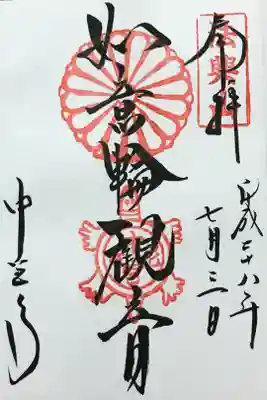 奉拝
法興
平成二十八年
七月三一日
如意輪観音
中宮寺